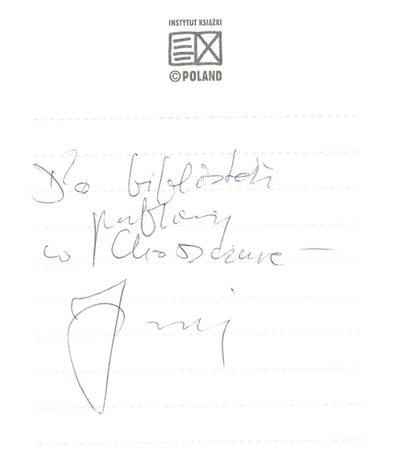 INSTYTUT KSIĄŻKI
©POLAND
Dla biblioteki
publicznej
w Choszcznie –